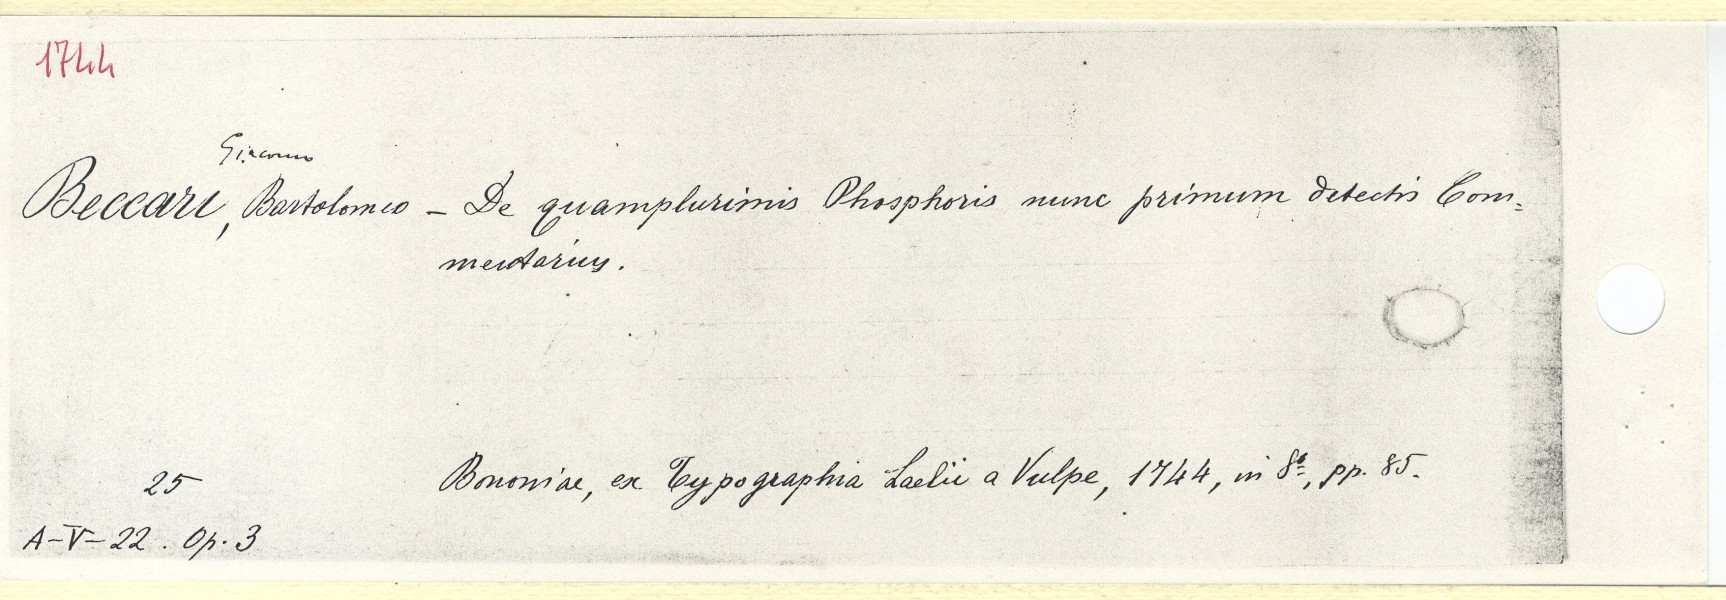 1744
Giacomo
Beccari, Bartolomeo – De quamplurimis Phosphoris nunc primum detectis Com=
mentarius.
25
Bononiae, ex Typographia Laelii a Vulpe, 1744, in 8º, pp. 85.
A-V-22. Op. 3